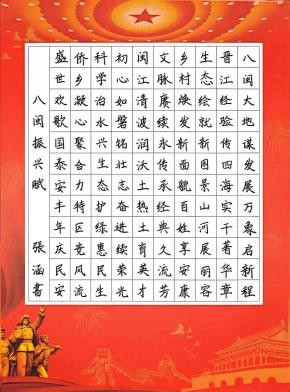 八闽大地谋发展万象启新程
晋江经验传四海实干著华章
生态绘就新图景山河展丽容
乡村焕发新面貌百姓享安康
文脉赓续永传承久流芳
闽江清波润沃土热土育英才
初心如磐铭壮志奋进续荣光
科学治水兴生态护绿惠民生
侨乡凝心聚合力特区竞风流
盛世欢歌国泰安丰年庆民安
八闽振兴赋 張涵書